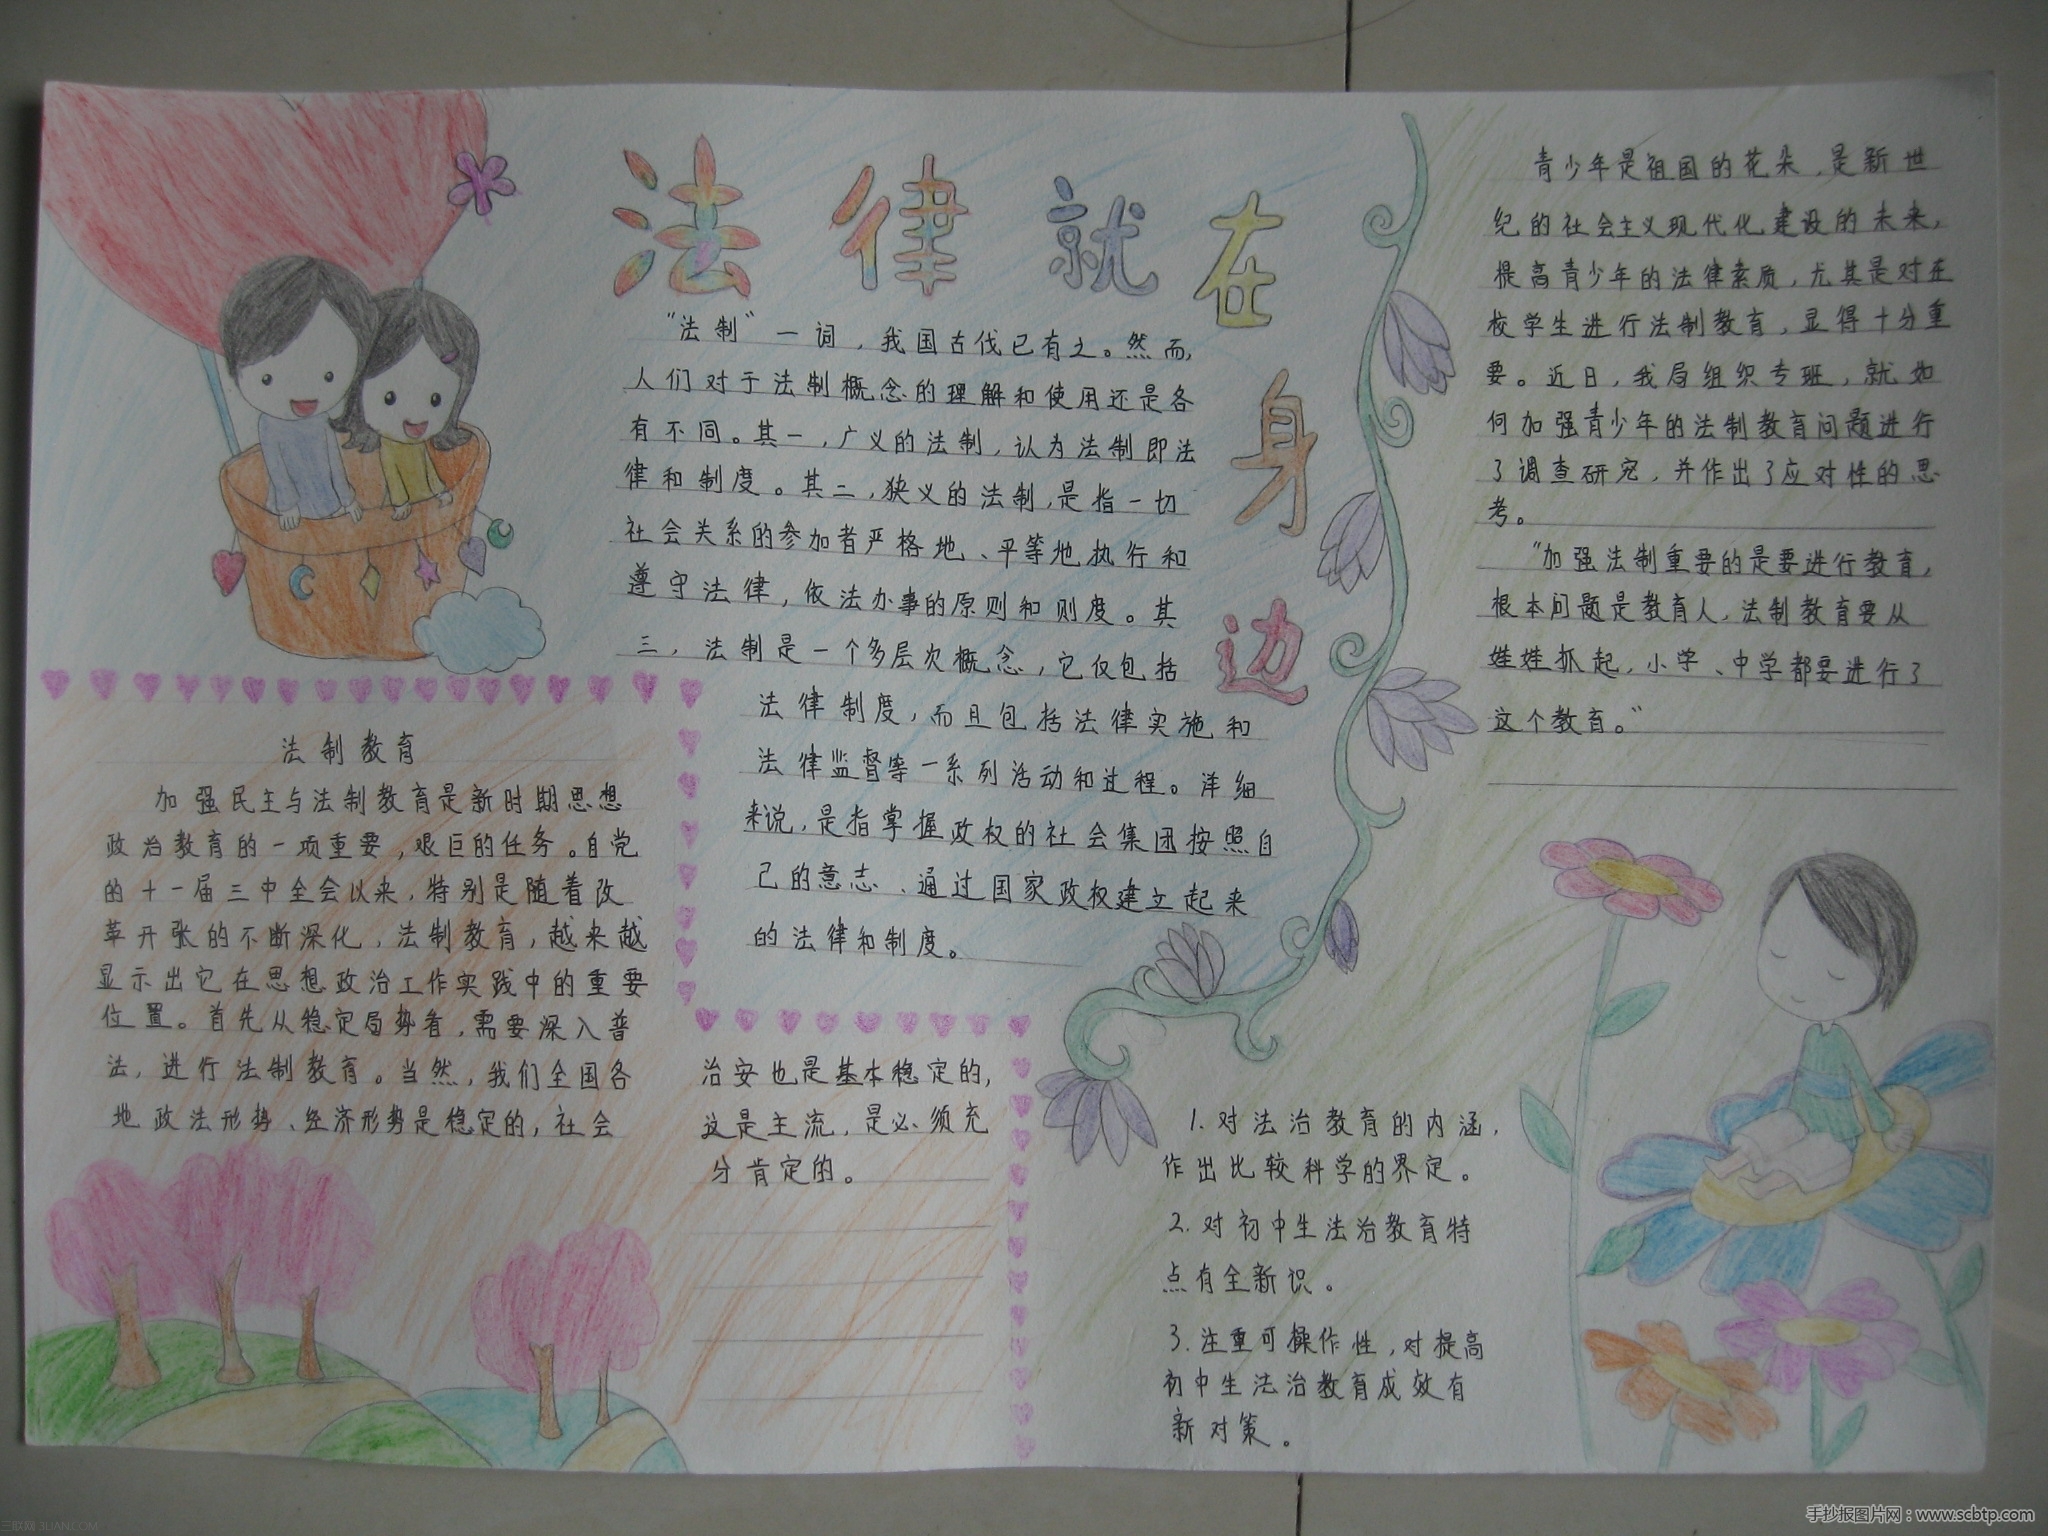 法律就在身边
“法制”一词，我国古代已有之。然而，
人们对于法制概念的理解和使用还是各
有不同。其一，广义的法制，认为法制即法
律和制度。其二，狭义的法制，是指一切
社会关系的参加者严格地、平等地执行和
遵守法律，依法办事的原则和则度。其
三，法制是一个多层次概念，它仅包括
法律制度，而且包括法律实施和
法律监督等一系列活动和过程。详细
来说，是指掌握政权的社会集团按照自
己的意志、通过国家政权建立起来
的法律和制度。
法制教育
加强民主与法制教育是新时期思想
政治教育的一项重要，艰巨的任务。自党
的十一届三中全会以来，特别是随着改
革开张的不断深化，法制教育，越来越
显示出它在思想政治工作实践中的重要
位置。首先从稳定局势看，需要深入普
法，进行法制教育。当然，我们全国各
地政法形势、经济形势是稳定的，社会
治安也是基本稳定的，
这是主流，是必须充
分肯定的。
青少年是祖国的花朵，是新世
纪的社会主义现代化建设的未来，
提高青少年的法律素质，尤其是对在
校学生进行法制教育，显得十分重
要。近日，我局组织专班，就如
何加强青少年的法制教育问题进行
了调查研究，并作出了应对性的思
考。
“加强法制重要的是要进行教育，
根本问题是教育人，法制教育要从
娃娃抓起，小学、中学都要进行了
这个教育。”
1.对法治教育的内涵，
作出比较科学的界定。
2.对初中生法治教育特
点有全新识。
3.注重可操作性，对提高
初中生法治教育成效有
新对策。
三联网 3LIAN.COM
手抄报图片网：www.scbtp.com